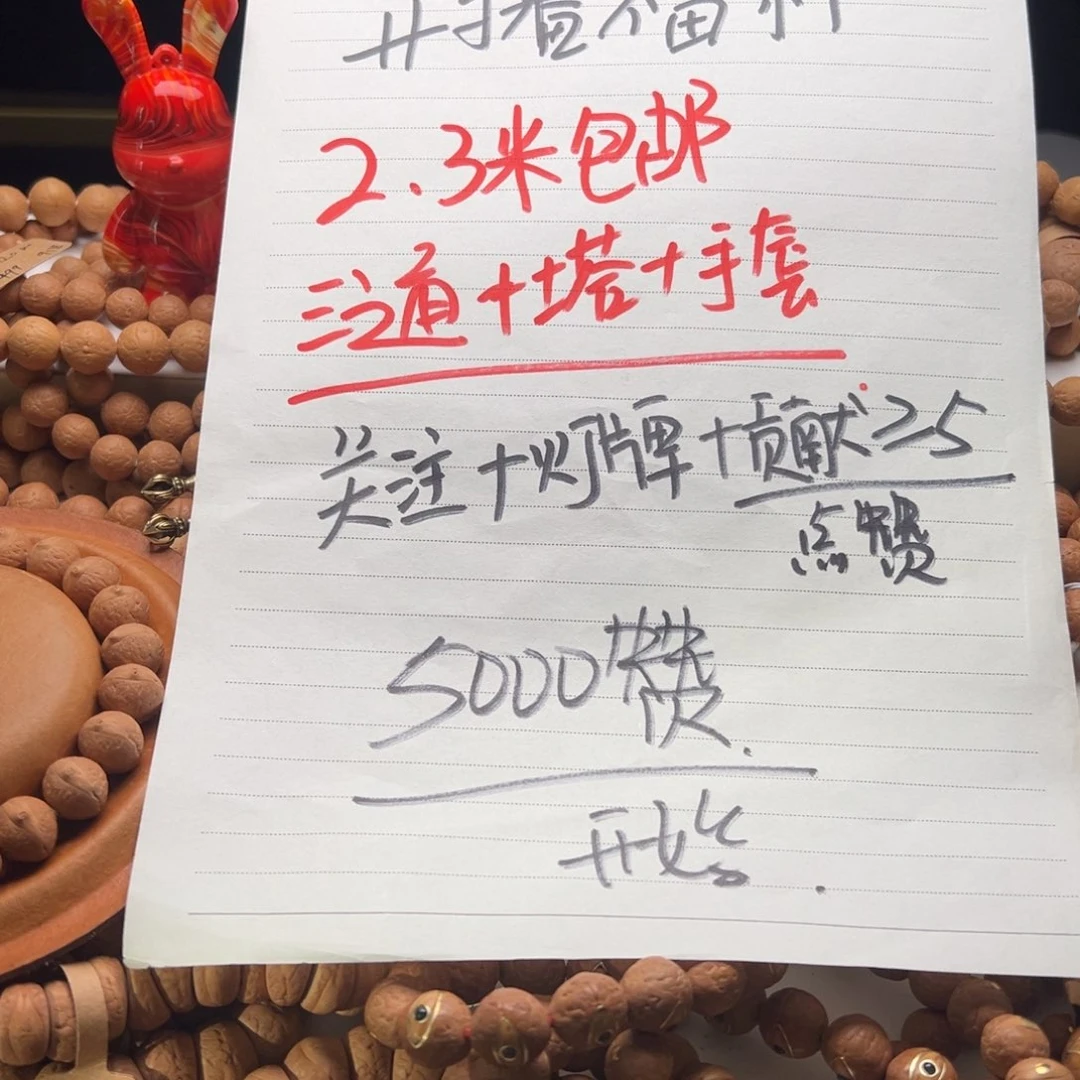 开播福利
2.3米包邮
三通+塔+手套
关注+灯牌+贡献>25
点赞
5000赞.
开始.